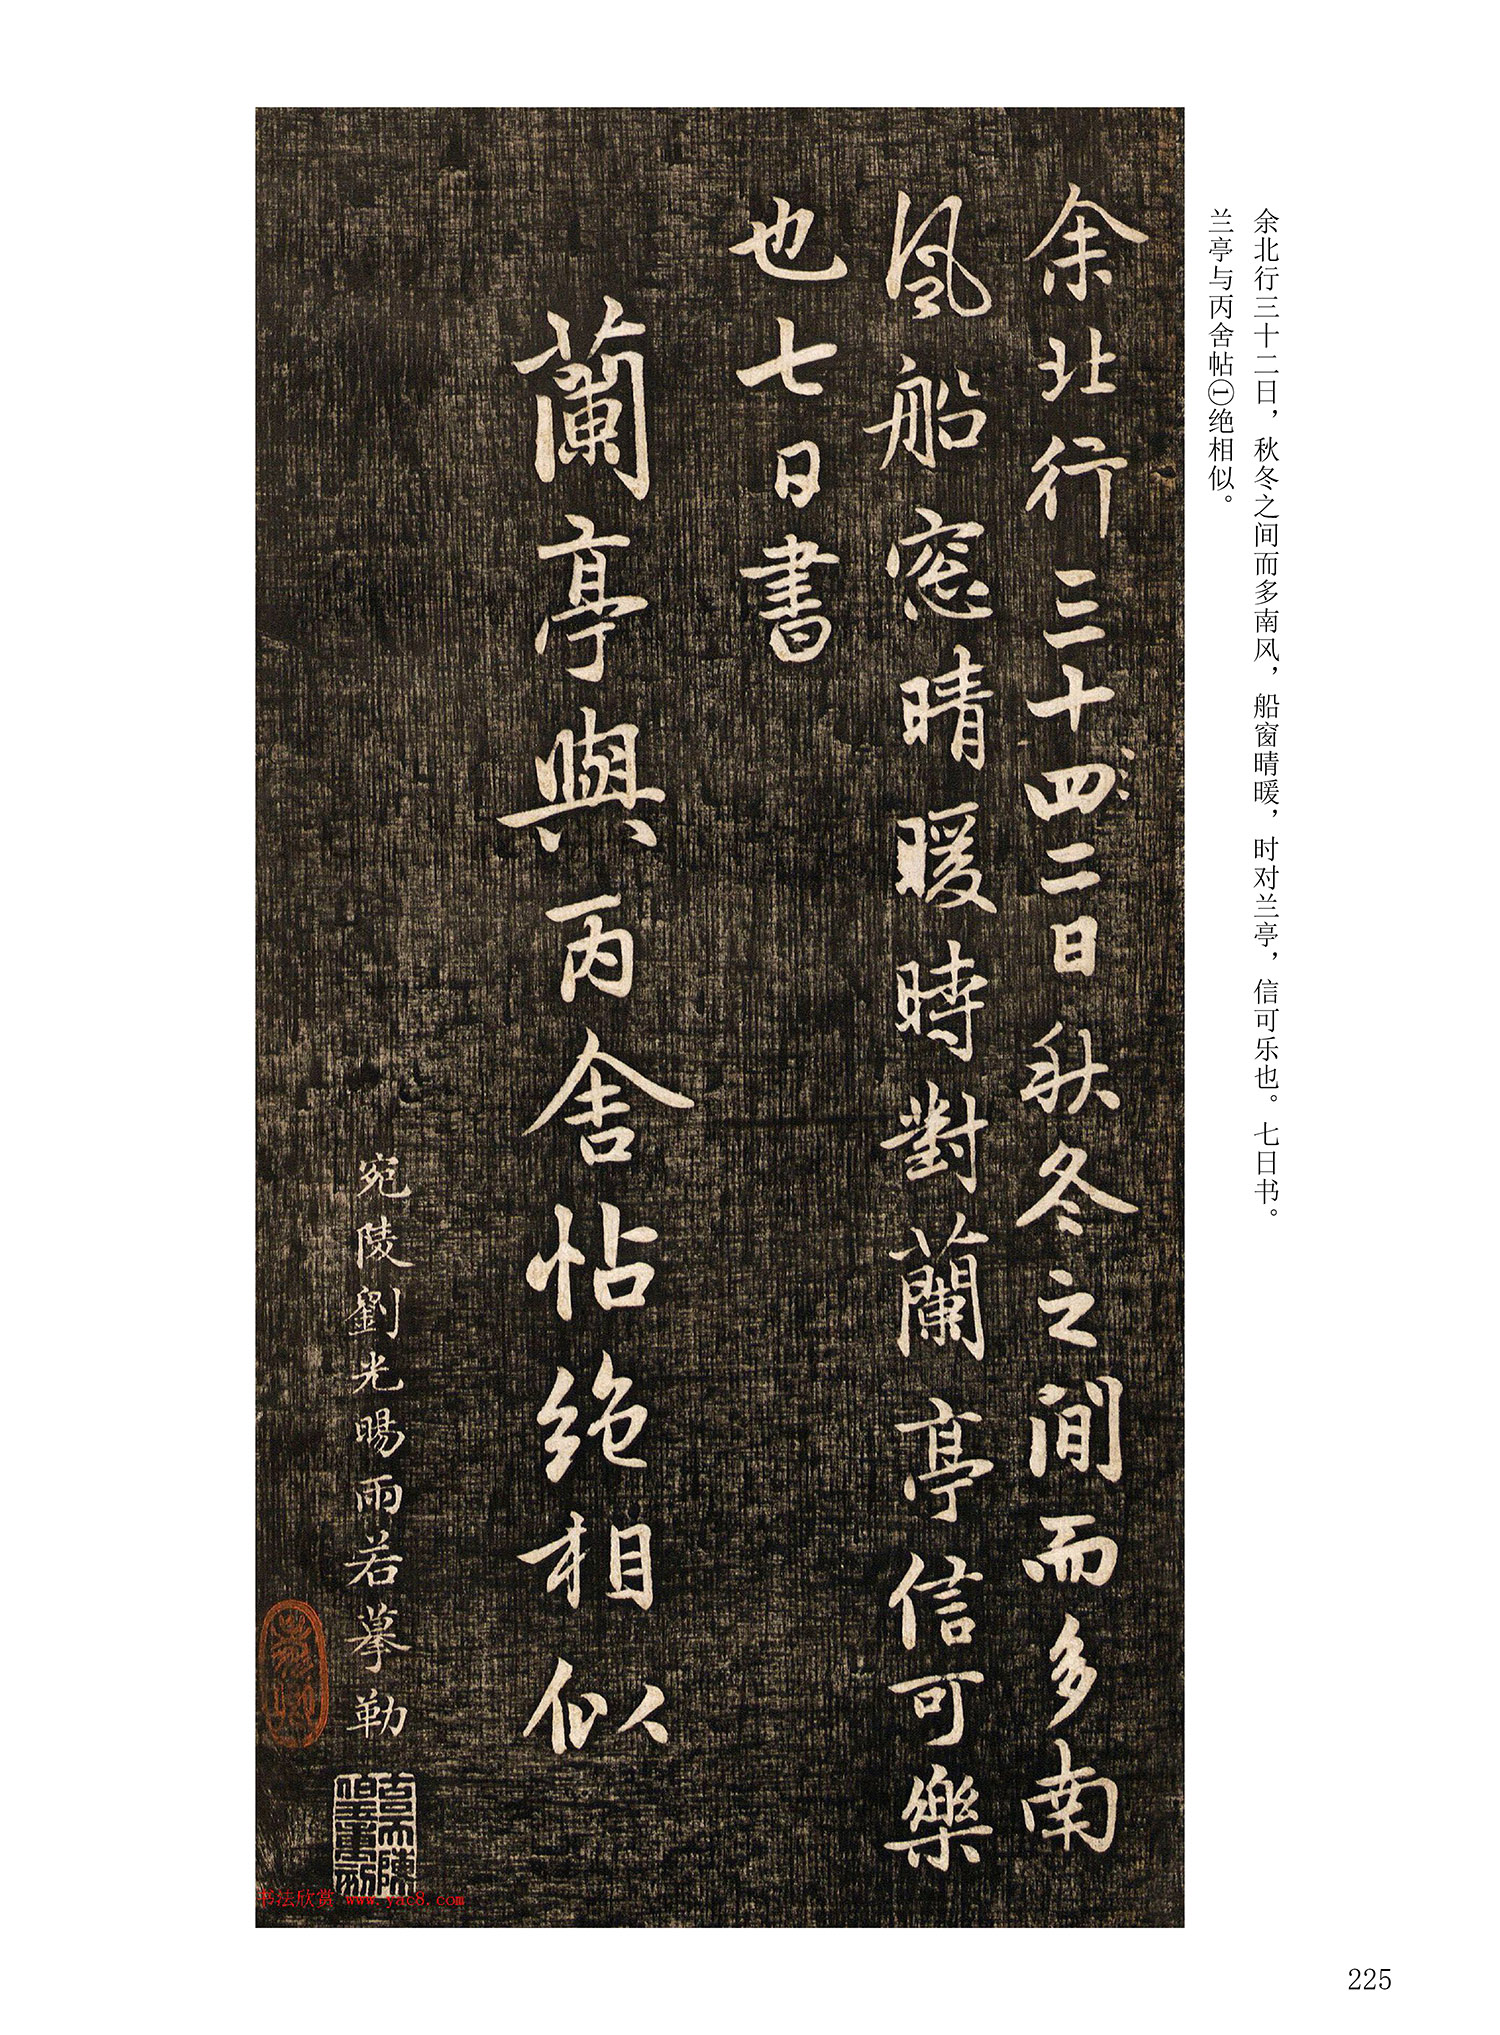 余北行三十二日，秋冬之间而多南风，船窗晴暖，时对兰亭，信可乐也。七日书。
兰亭与丙舍帖①绝相似。
余北行三十四二日秋冬之間而多南
風船窓晴暖時對蘭亭信可樂
也七日書
蘭亭與丙舍帖絶相似
宛陵劉光暘雨若摹勒
书法欣赏 www.yac8.com
225